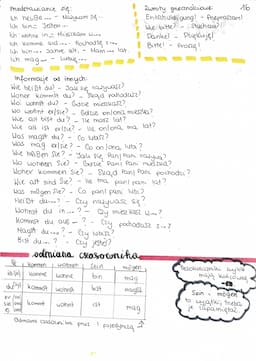 Przedstawianie się:
Ich heiße ... - Nazywam się...
Ich bin ... - Jestem...
Ich wohne in ... - Mieszkam w...
Ich komme aus ... - Pochodzę z...
Ich bin ... Jahre alt. - Mam ... lat
Ich mag ... - Lubię...
Zwroty grzecznościowe:
Entschuldigung! - Przepraszam!
Wie bitte? - Słucham?
Danke! - Dziękuję!
Bitte! - Proszę!
Informacje od innych:
Wie heißt du? - Jak się nazywasz?
Woher kommst du? - Skąd pochodzisz?
Wo wohnst du? - Gdzie mieszkasz?
Wo wohnt er/sie? - Gdzie on/ona mieszka?
Wie alt bist du? - Ile masz lat?
Wie alt ist er/sie? - Ile on/ona ma lat?
Was magst du? - Co lubisz?
Was mag er/sie? - Co on/ona lubi?
Wie heißen Sie? - Jak się Pan/Pani nazywa?
Wo wohnen Sie? - Gdzie Pan/Pani mieszka?
Woher kommen Sie? - Skąd Pan/Pani pochodzi?
Wie alt sind Sie? - Ile ma pan/pani lat?
Was mögen Sie? - Co pan/pani lubi?
Heißt du...? - Czy nazywasz się?
Wohnst du in...? - Czy mieszkasz w...?
Kommst du aus...? - Czy pochodzisz z...?
Magst du...? - Czy lubisz?
Bist du...? - Czy jesteś?
odmiana czasownika
kommen wohnen sein mögen
ich komme wohne bin mag
du kommst wohnst bist magst
kommt wohnt ist mag
Sein i mögen
to wyjątki, trzeba
je zapamiętać